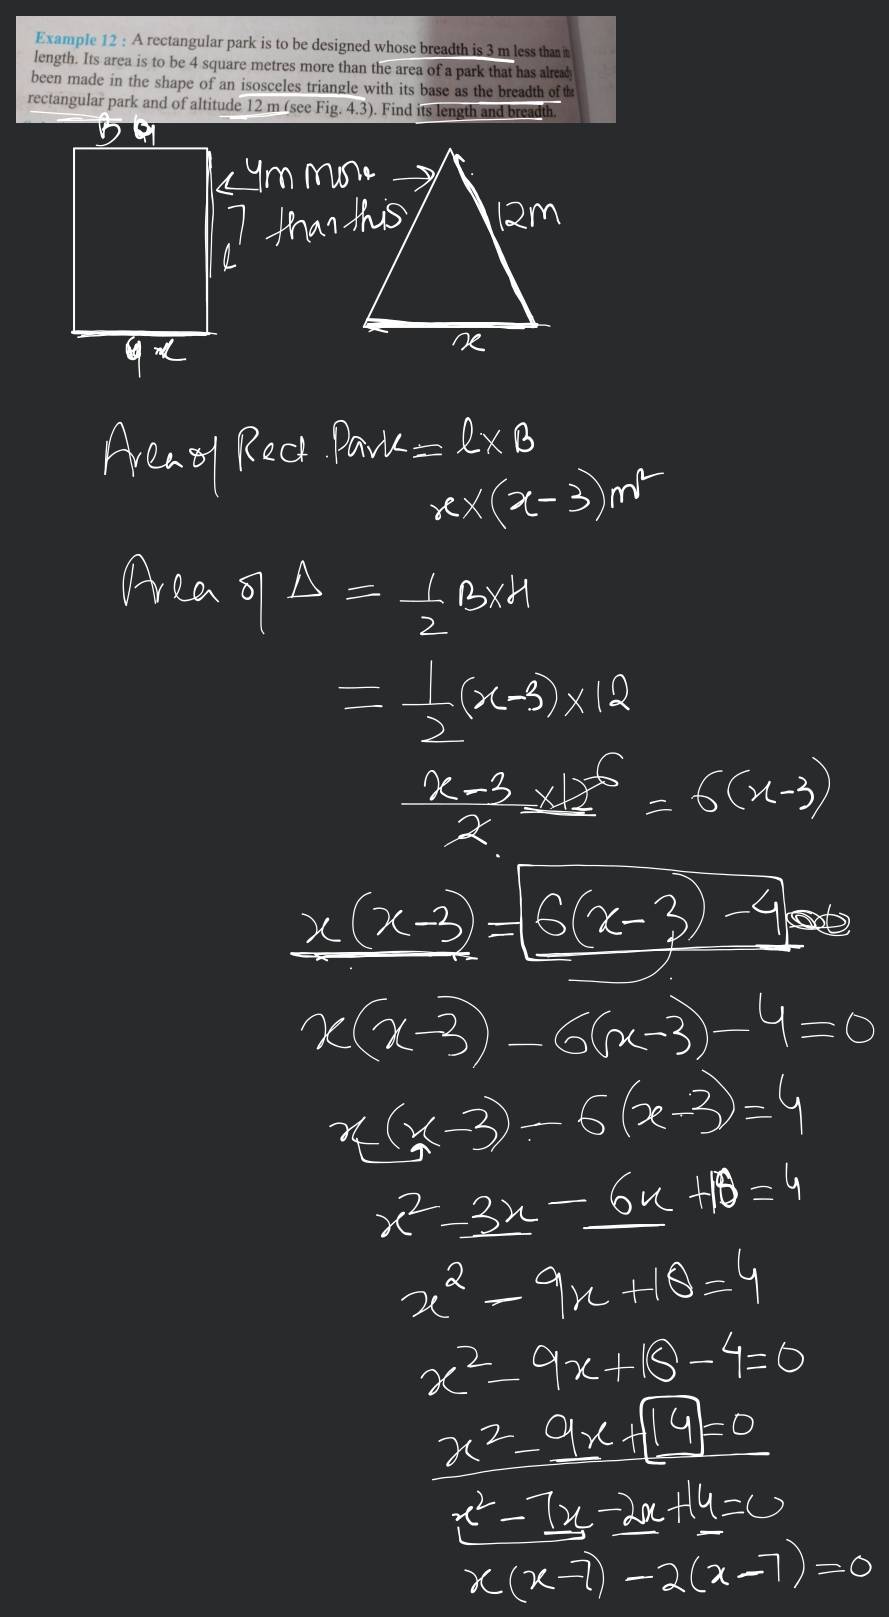 Example 12 : A rectangular park is to be designed whose breadth is 3 m less than
length. Its area is to be 4 square metres more than the area of a park that has already
been made in the shape of an isosceles triangle with its base as the breadth of the
rectangular park and of altitude 12 m (see Fig. 4.3). Find its length and breadth.
4m more
than this
l
12m
x
x
Area of Rect. Park = l × B
x × (x-3) m²
Area of Δ = 1/2 B×H
= 1/2 (x-3) × 12
x-3 × 12 / 2 6 = 6(x-3)
x(x-3) = 6(x-3) - 4
x(x-3) - 6(x-3) - 4 = 0
x(x-3) - 6(x-3) = 4
x² - 3x - 6x + 18 = 4
x² - 9x + 18 = 4
x² - 9x + 18 - 4 = 0
x² - 9x + 14 = 0
x² - 7x - 2x + 14 = 0
x(x-7) - 2(x-7) = 0